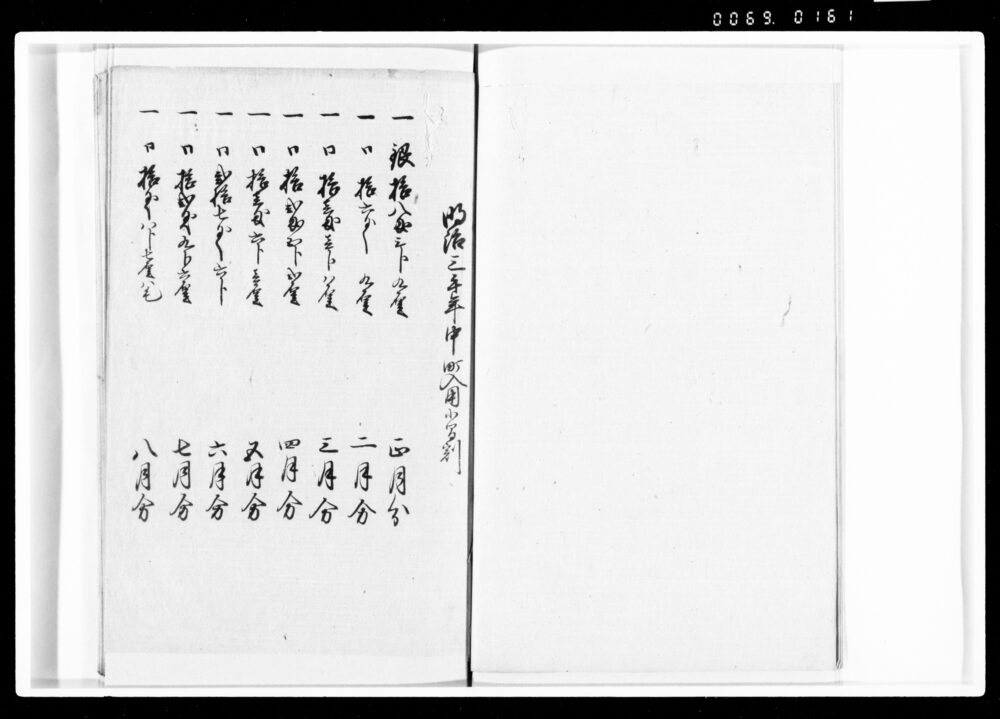 0069. 0161
明治三年年中町入用小間割
一 銀拾八匁三分九厘 正月分
一 同拾六匁 九厘 二月分
一 同拾五匁三分八厘 三月分
一 同拾弐匁 四月分
一 同拾 五厘 五月分
一 同弐拾七匁 六分 六月分
一 同拾弐匁九分六厘 七月分
一 同拾 八分七厘 八月分